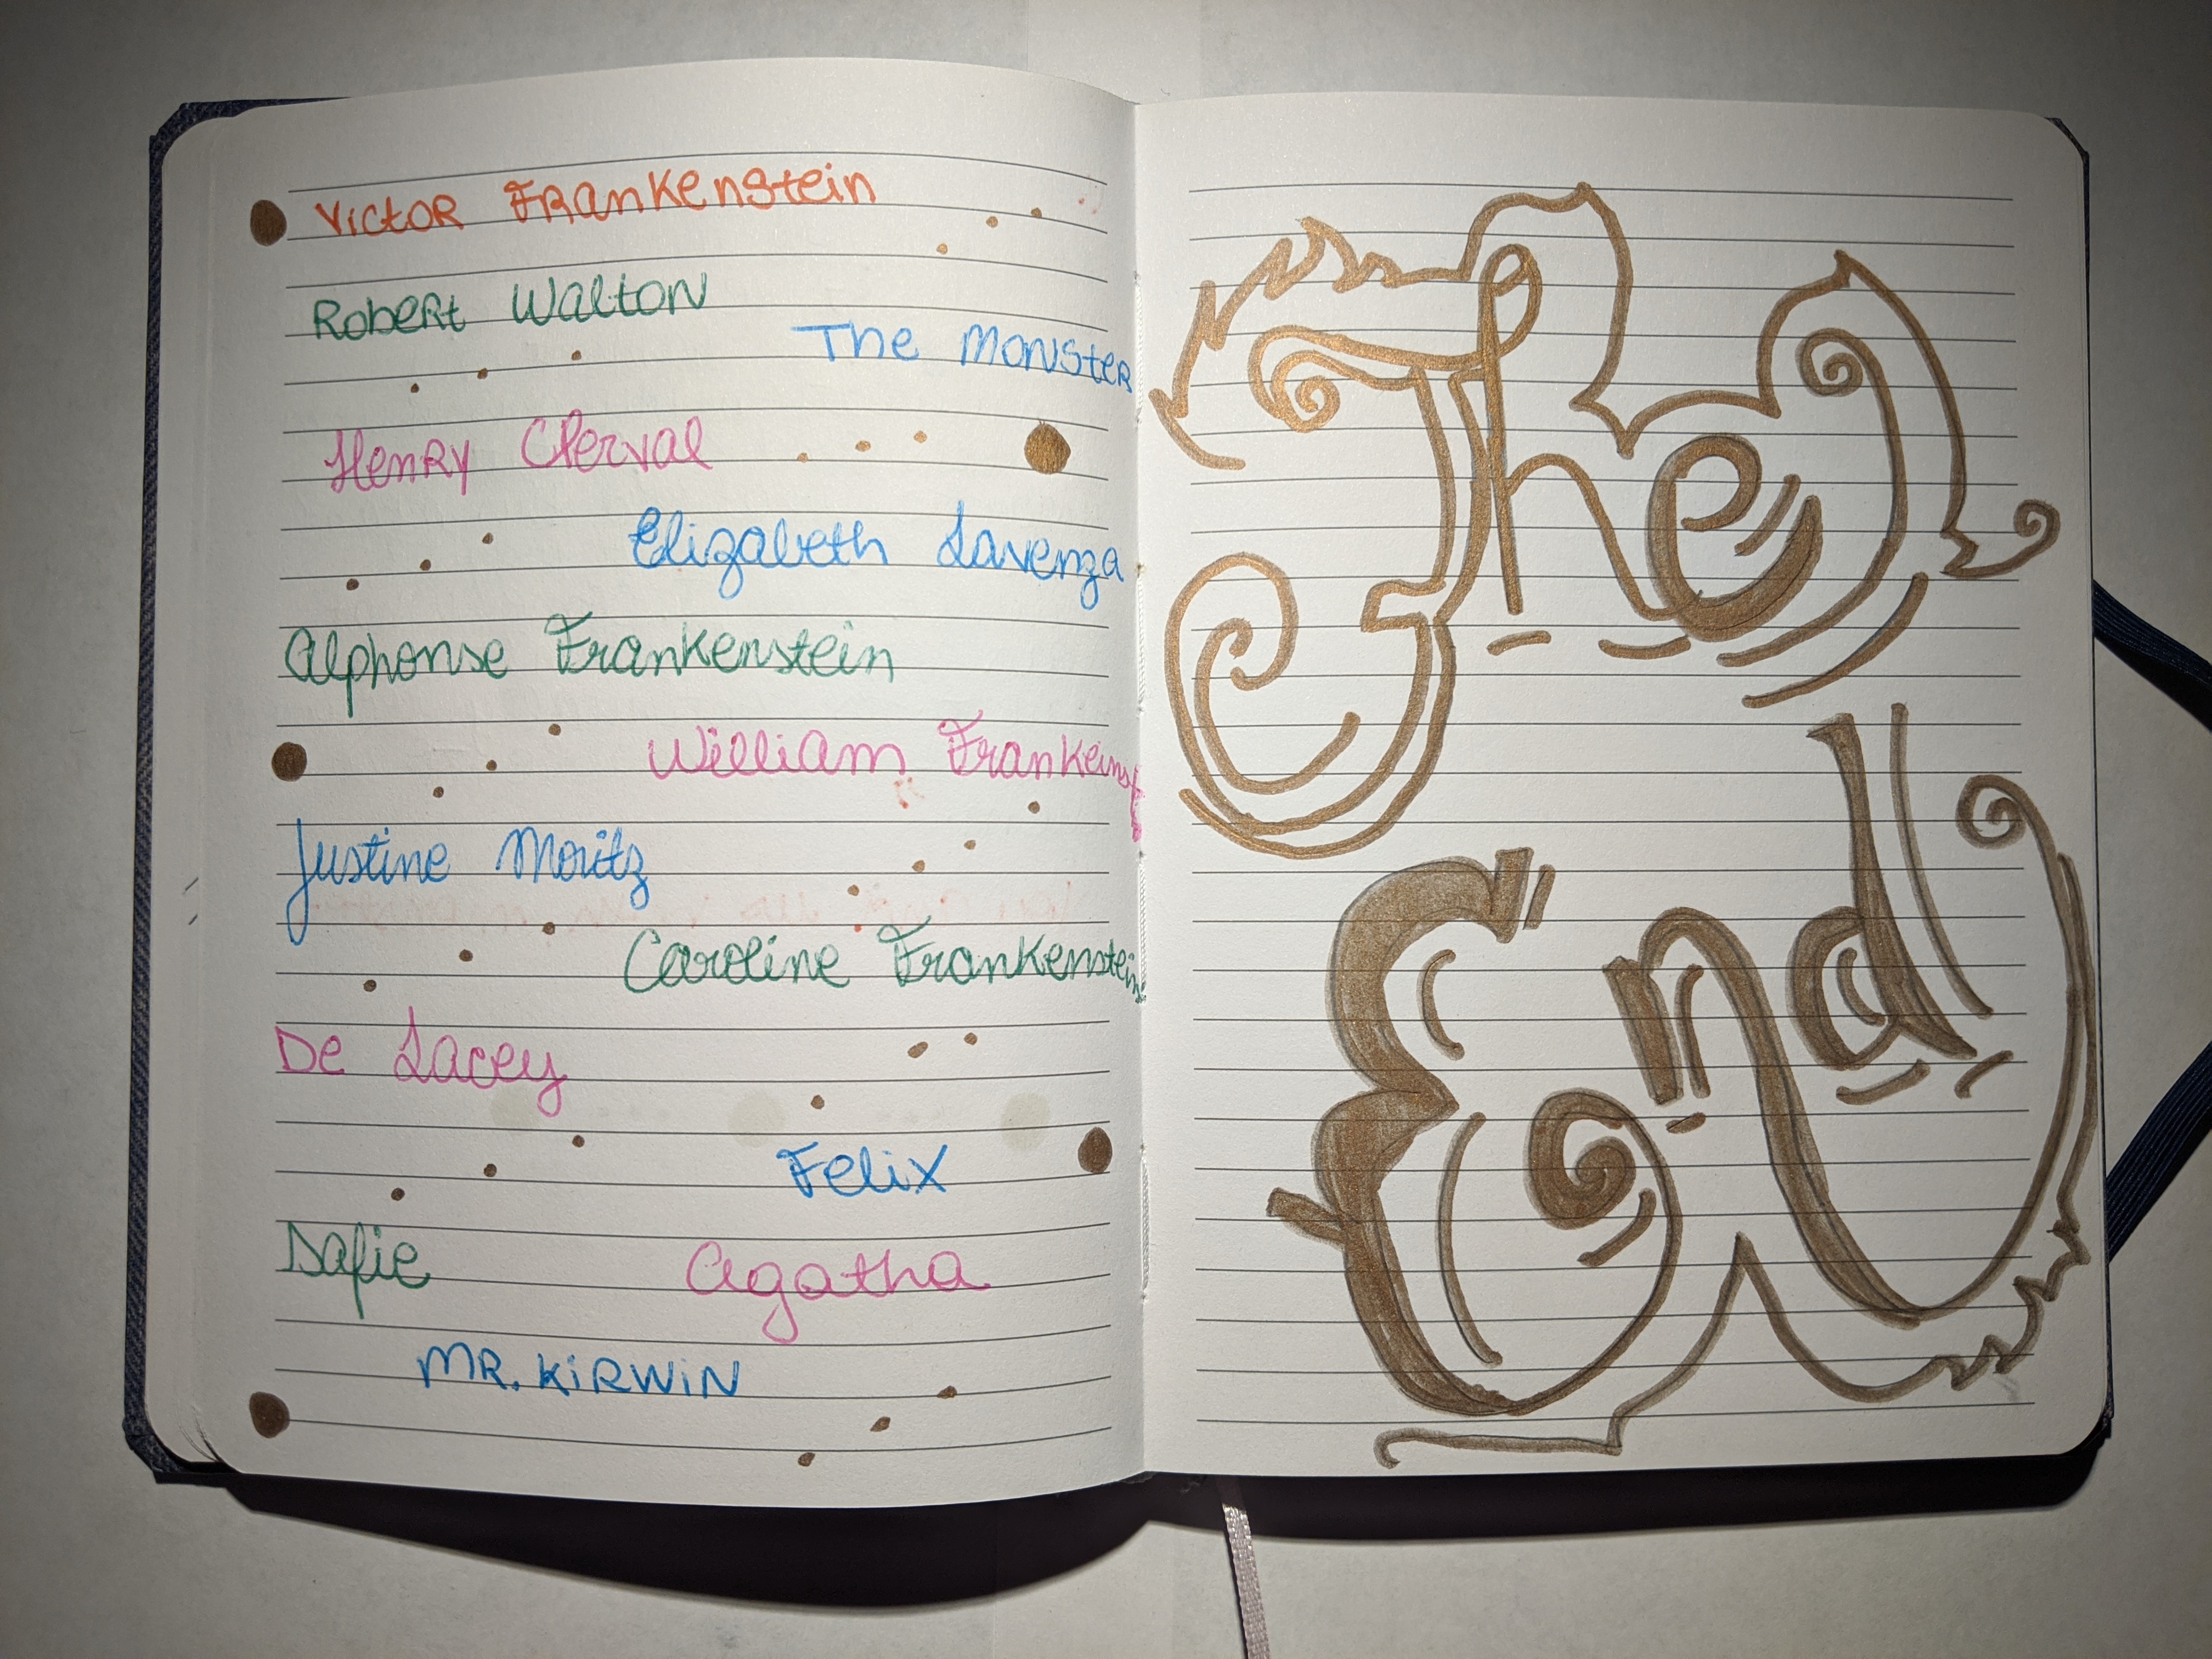 Victor Frankenstein
Robert Walton
The Monster
Henry Clerval
Elizabeth Lavenza
Alphonse Frankenstein
William
Justine Moritz
Caroline Frankenstein
De Lacey
Felix
Safie Agatha
MR. KiRWiN
The
End